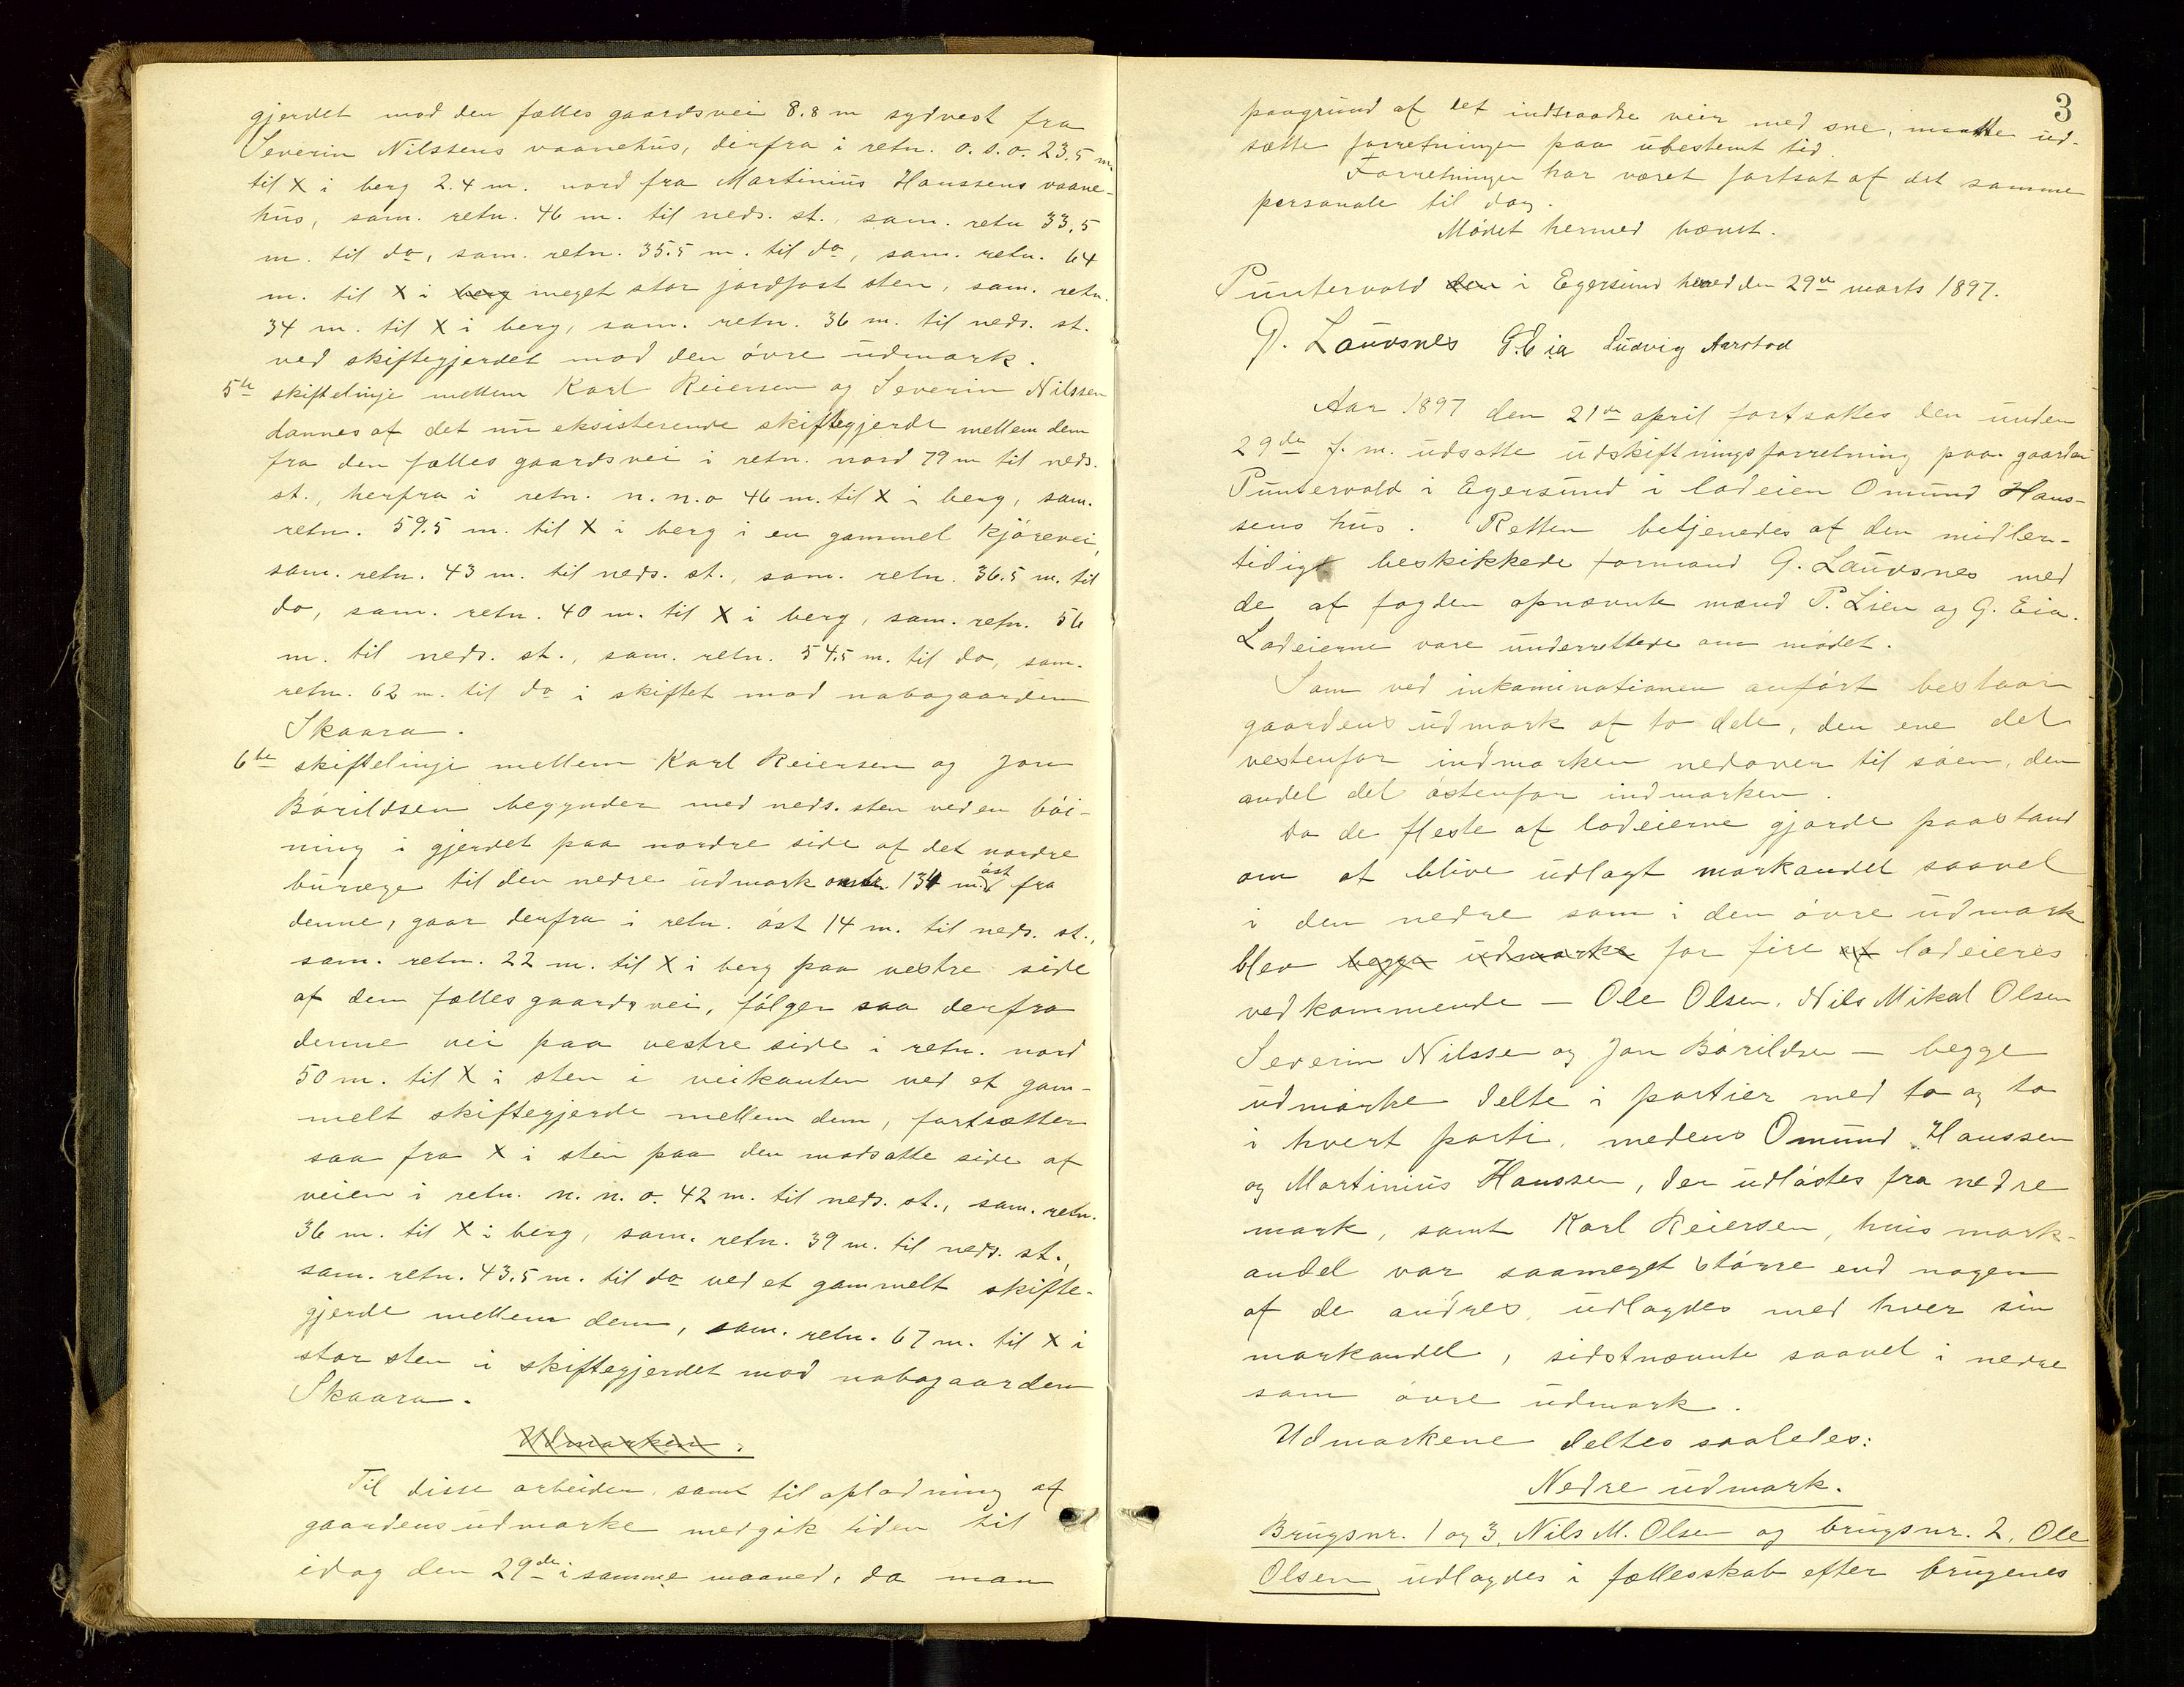 gjerdet mod den fælles gaardsvei 8.8 m sydvest fra
Severin Nilssens vaanehus, derfra i retn. o.s.o. 23.5 m.
til X i berg 2.4 m. nord fra Martinius Hanssens vaane-
hus, sam. retn. 46 m. til neds. st., sam. retn 33.5
m. til do, sam. retn. 35.5 m. til do, sam. retn. 64
m. til X i berg meget stor jordfast sten, sam. retn.
34 m. til X i berg, sam. retn. 36 m. til neds. st.
ved skiftegjerdet mod den övre udmark.
5te skiftelinje mellem Karl Reiersen og Severin Nilssen
dannes af det nu eksisterende skiftegjerde mellem dem
fra den fælles gaardsvei i retn. nord 79 m til neds.
st., herfra i retn. n.n.o 46 m. til X i berg, sam.
retn. 59.5 m. til X i berg i en gammel kjörevei,
sam. retn. 43 m. til neds. st., sam. retn. 36.5 m. til
do, sam. retn. 40 m. til X i berg, sam. retn. 56
m. til neds. st., sam. retn. 54.5 m. til do, sam.
retn. 62 m. til do i skiftet mod nabogaarden
Skaara.
6te skiftelinje mellem Karl Reiersen og Jon
Börildsen begynder med neds. sten ved en böi-
ning i gjerdet paa nordre side af det nordre
buræge til den nedre udmark omtr. 134 m. öst fra
denne, gaar derfra i retn. öst 14 m. til neds. st.,
sam. retn. 22 m. til X i berg paa vestre side
af den fælles gaardsvei, fölger saa derfra
denne vei paa vestre side i retn. nord
50 m. til X i sten i veikanten ved et gam-
melt skiftegjerde mellem dem, fortsætter
saa fra X i sten paa den modsatte side af
veien i retn. n.n.o. 42 m. til neds. st., sam. retn.
36 m. til X i berg, sam. retn. 39 m. til neds. st.,
sam. retn. 43.5 m. til do ved et gammelt skifte-
gjerde mellem dem, sam. retn. 67 m. til X i
stor sten i skiftegjerdet mod nabogaarden
Skaara.
Udmarken.
Til disse arbeider, samt til oplodning af
gaardens udmarke medgik tiden til
idag den 29de i samme maaned, da man
3
paagrund af det indtraadte veir med sne, maatte ud-
sætte forretningen paa ubestemt tid.
Forretningen har været fortsat af det samme
personale til dag.
Mödet hermed hævet.
Puntervold den i Egersund hered den 29de marts 1897.
G. Lauvsnes G. Eia Ludvig Aarstad
Aar 1897 den 21de april fortsattes den under
29de f. m. udsatte udskiftningsforretning paa gaarden
Puntervold i Egersund i lodeien Omund Hans-
sens hus. Retten betjenedes af den midler-
tidigt beskikkede formand G. Lauvsnes med
de af fogden opnævnte mænd P. Lien og G. Eia.
Lodeierne vare underrettede om mödet.
Som ved inkaminationen anfört bestaar
gaardens udmark af to dele, den ene del
vestenfor indmarken nedover til söen, den
andel del östenfor indmarken.
Da de fleste af lodeierne gjorde paastand
om at blive udlagt markandel saavel
i den nedre som i den övre udmark
blev begge udmarke for fire af lodeieres
vedkommende — Ole Olsen, Nils Mikal Olsen
Severin Nilssen og Jon Börildsen — begge
udmarke delte i partier med to og to
i hvert parti, medens Omund Hanssen
og Martinius Hanssen, der udlöstes fra nedre
mark, samt Karl Reiersen, hvis mark-
andel var saameget större end nogen
af de andres, udlagdes med hver sin
markandel, sidstnævnte saavel i nedre
som övre udmark.
Udmarkene deltes saaledes:
Nedre udmark.
Brugsnr. 1 og 3, Nils M. Olsen og brugsnr. 2, Ole
Olsen, udlagdes i fællesskab efter brugenes